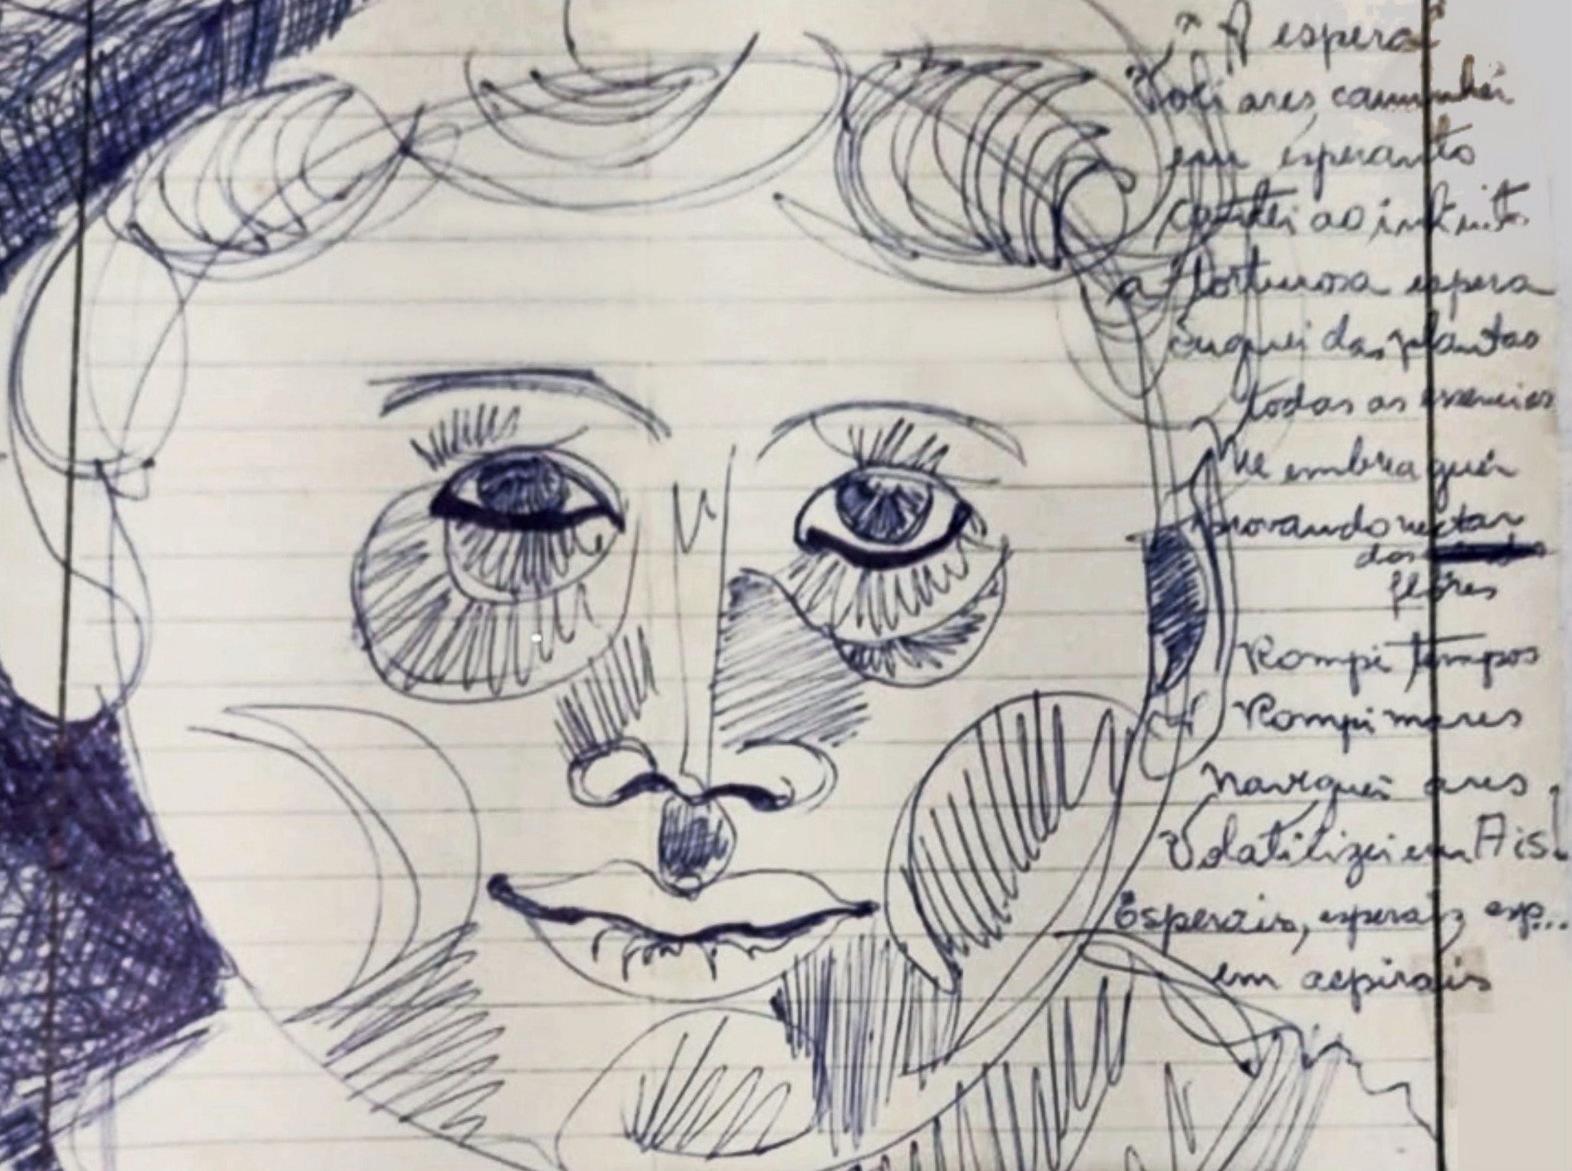 "A espera"
Voei ares, caminhei
em esperanto
Cantei ao infinito
a tortuosa espera
Suguei das plantas
todas as essencias
Me embreaguei
provando nectar
das
flores
Rompi tempos
Rompi mares
Narguei ares
Volatilizei em Ais!
Esperais, esperais, esp...
em aspirais